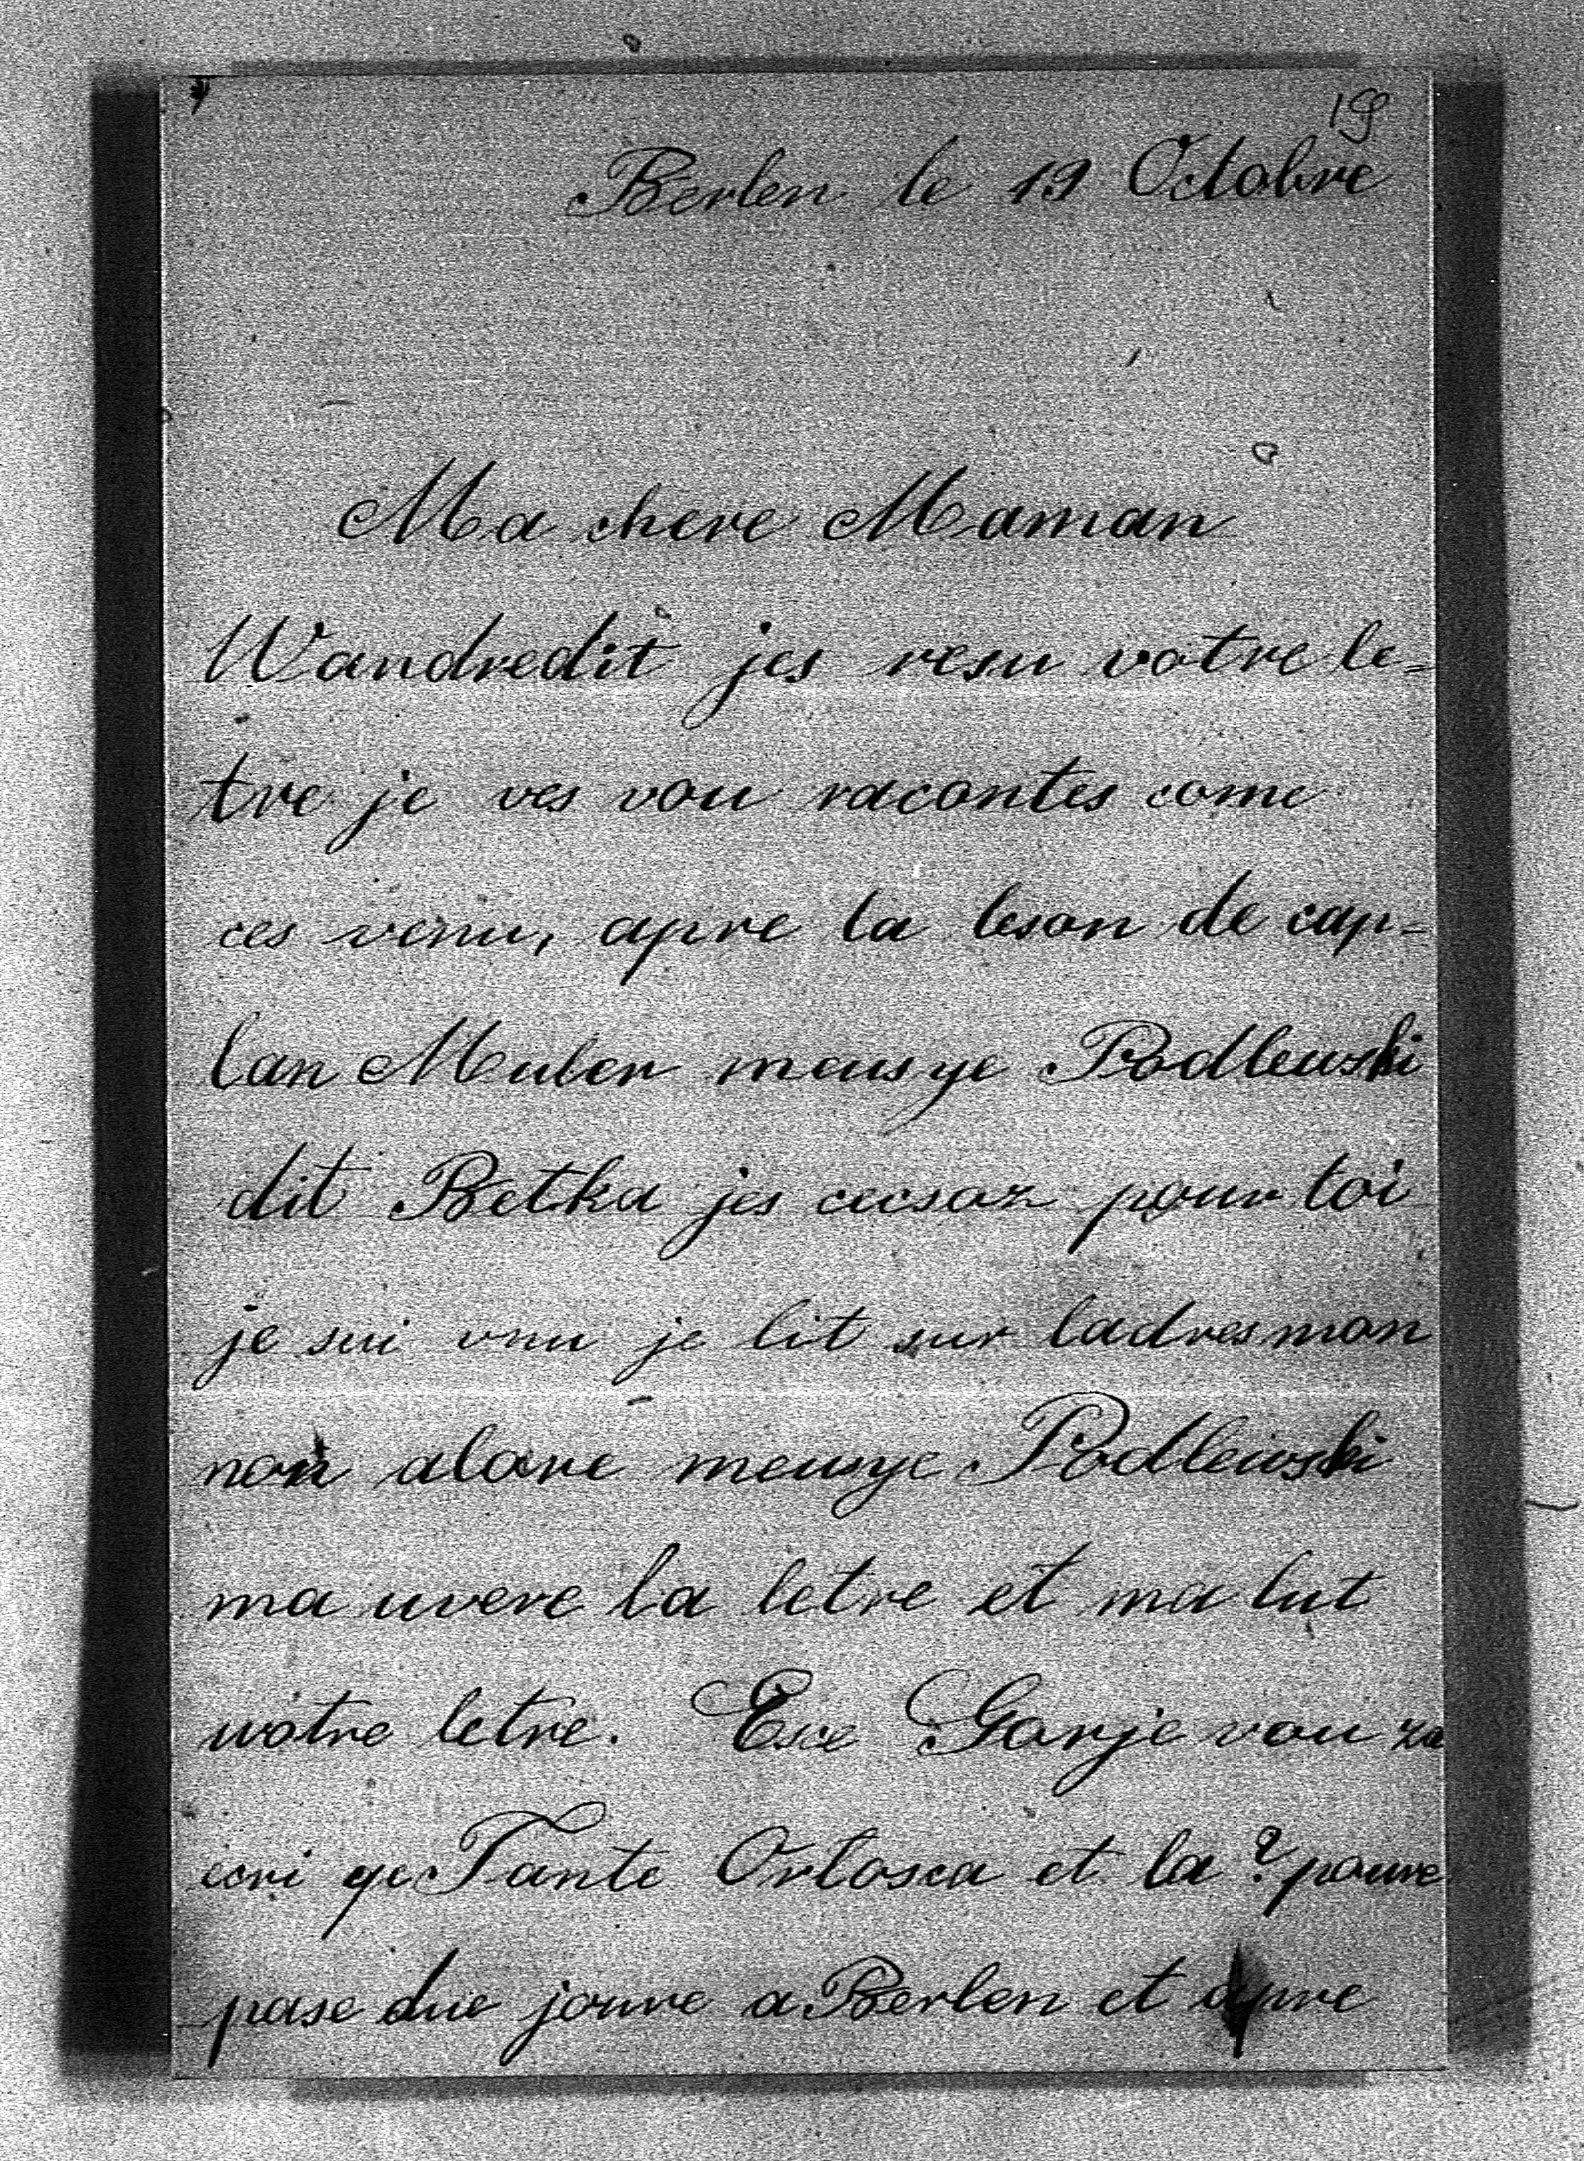 19
Berlen le 19 Octobre
Ma chere Maman
Wandredit jes resu votre le=
tre je ves vou racontes come
ces venu, apre la leson de cap-
lan Muler meusye Podlewski
dit Betka jes cecsoz pour toi
je sui vnu je lit sur ladres mon
non alore meusye Podlewski
ma uvere la letre et ma lut
wotre letre. Esce Gorje vou za
ecri qe Tante Orlosca et la ? pouve
pase due joure a Berlen et apre